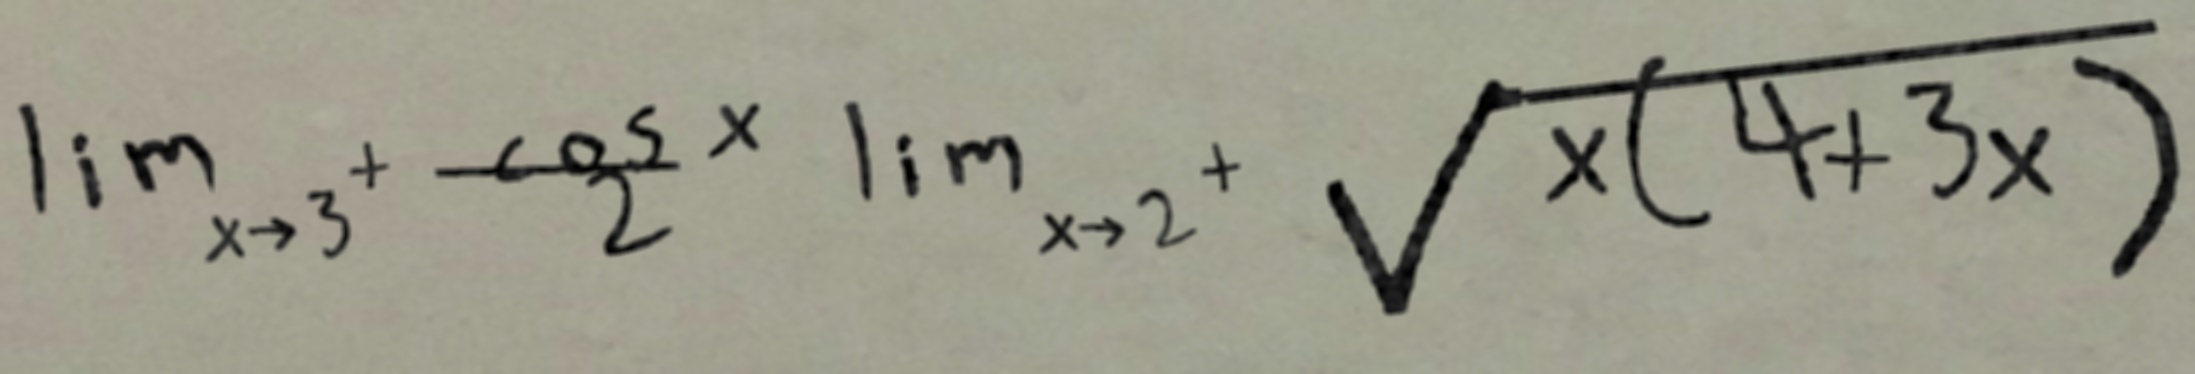 \lim_{x \to 3^+} \frac{\cos}{2} x \lim_{x \to 2^+} \sqrt{x(4+3x)}